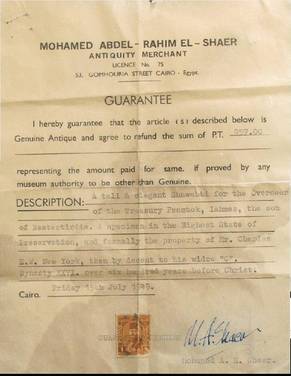 MOHAMED ABDEL - RAHIM EL - SHAER
ANTIQUITY MERCHANT
LICENCE No. 75
53, GOMHOURIA STREET CAIRO - Egypt.
GUARANTEE
I hereby guarantee that the article (s) described below is
Genuine Antique and agree to refund the sum of P.T.
representing the amount paid for same. if proved by any
museum authority to be other than Genuine.
DESCRIPTION: A tall & elegant Shawabti for the Overseer
of the Treasury Iahmes, the son
of A specimen in the Highest State of
Preservation, and formally the property of Mr. Charles
New York, then by descent to his widow
Dynasty XXVI. over six hundred years before Christ.
Cairo. Friday 15th July 1949.
M. A. Shaer
Mohamed A. R. Shaer.